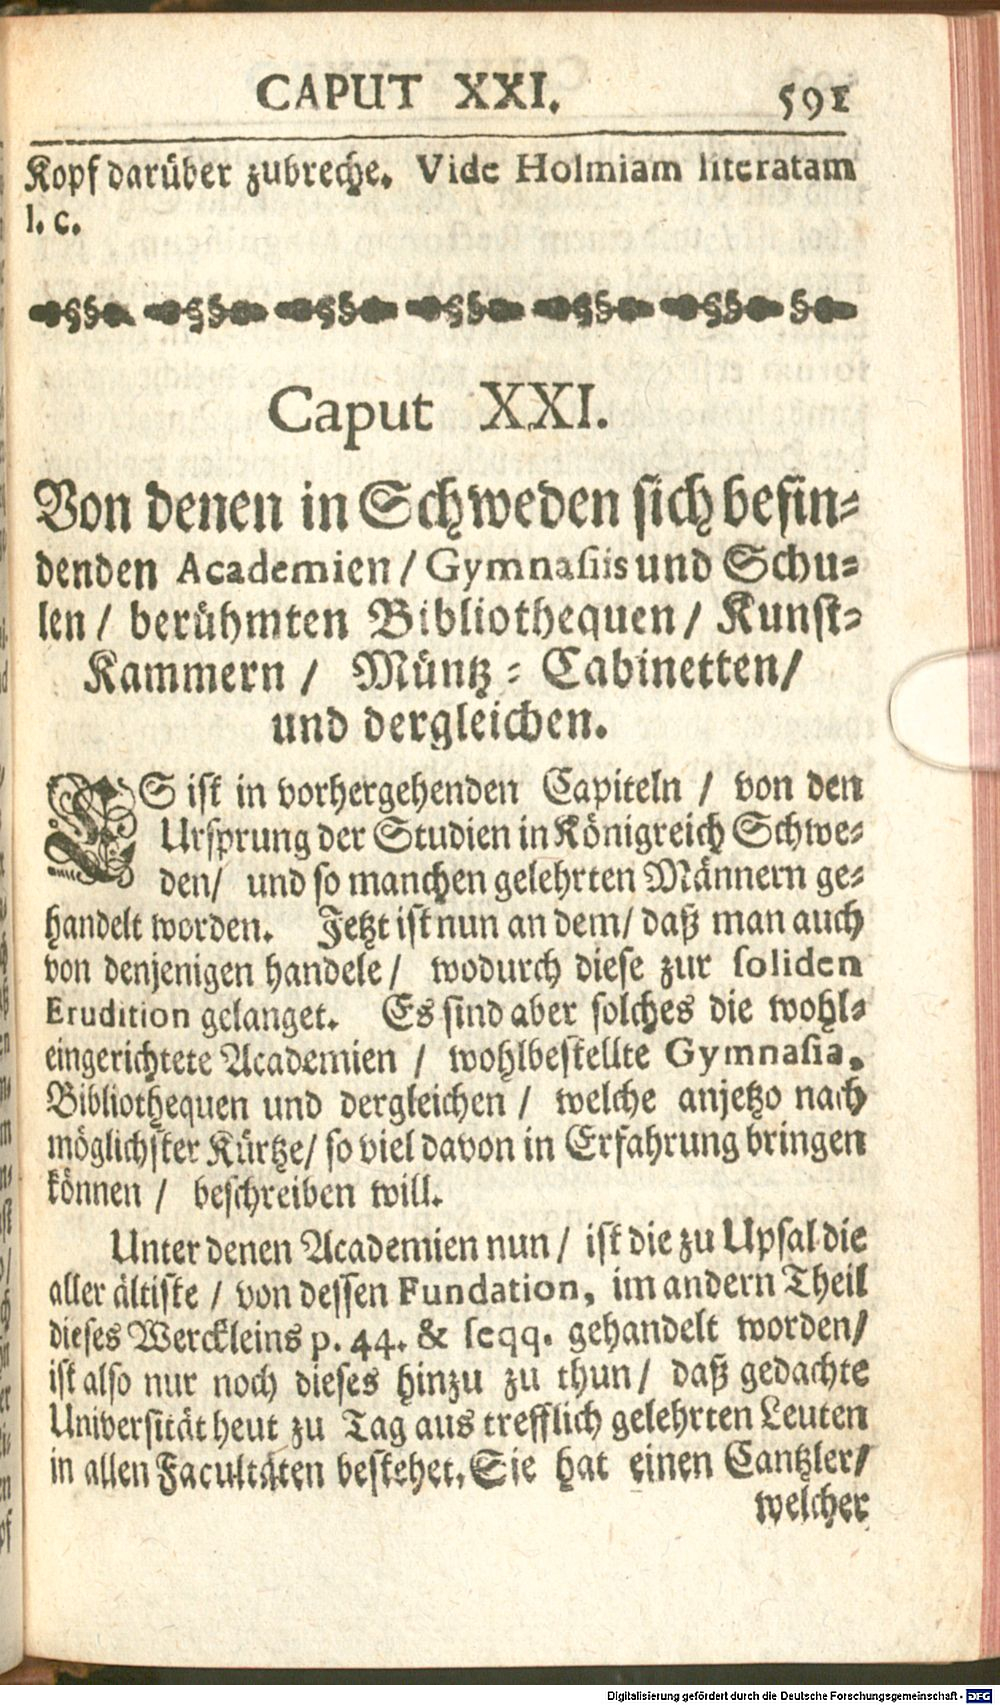 CAPUT XXI. 591
Kopf darüber zubreche. Vide Holmiam literatam
l. c.
Caput XXI.
Von denen in Schweden sich befin-
denden Academien / Gymnasiis und Schu-
len / berühmten Bibliothequen / Kunst-
Kammern / Müntz-Cabinetten /
und dergleichen.
ES ist in vorhergehenden Capiteln / von den
Ursprung der Studien in Königreich Schwe-
den / und so manchen gelehrten Männern ge-
handelt worden. Jetzt ist nun an dem / daß man auch
von denjenigen handele / wodurch diese zur soliden
Erudition gelanget. Es sind aber solches die wohl-
eingerichtete Academien / wohlbestellte Gymnasia,
Bibliothequen und dergleichen / welche anjetzo nach
möglichster Kürtze / so viel davon in Erfahrung bringen
können / beschreiben will.
Unter denen Academien nun / ist die zu Upsal die
aller ältiste / von dessen Fundation, im andern Theil
dieses Werckleins p. 44. & seqq. gehandelt worden /
ist also nur noch dieses hinzu zu thun / daß gedachte
Universität heut zu Tag aus trefflich gelehrten Leuten
in allen Facultäten bestehet. Sie hat einen Cantzler /
welcher
Digitalisierung gefördert durch die Deutsche Forschungsgemeinschaft - DFG